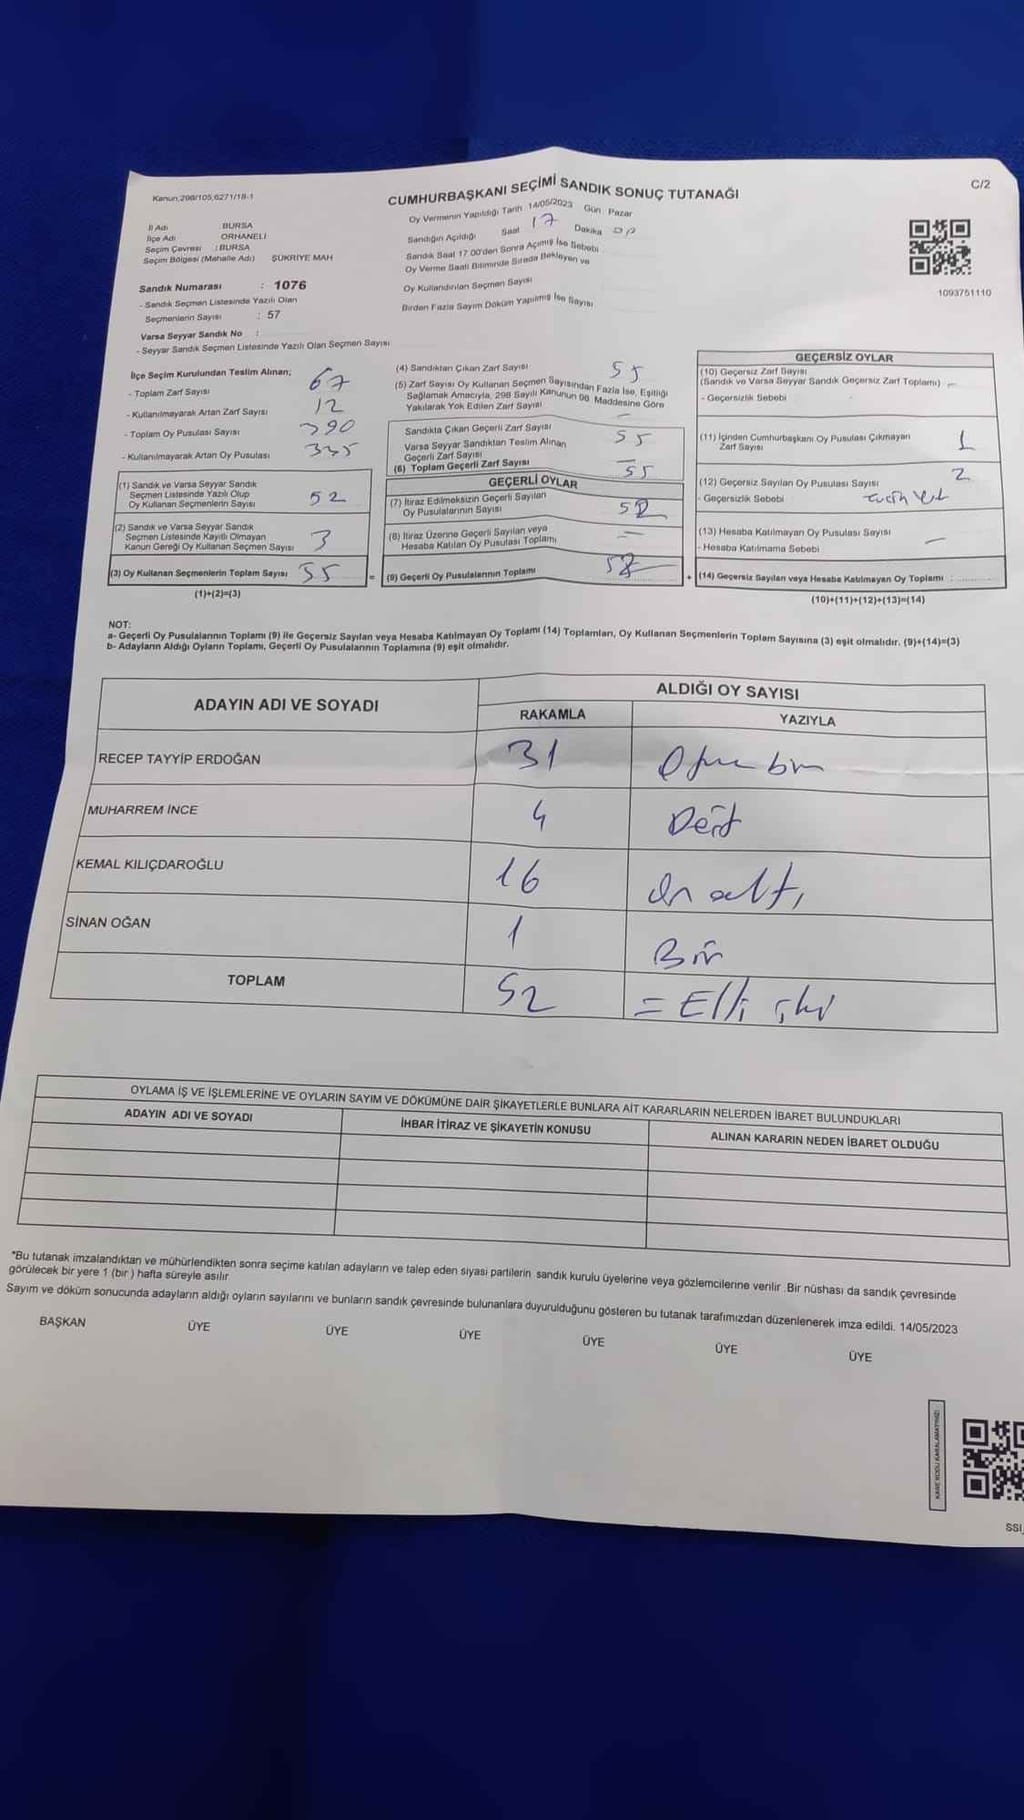 Kanun,298/105,6271/18-1
CUMHURBAŞKANI SEÇİMİ SANDIK SONUÇ TUTANAĞI
C/2
İl Adı BURSA
İlçe Adı ORHANELİ
Seçim Çevresi : BURSA
Seçim Bölgesi (Mahalle Adı) ŞÜKRİYE MAH
Sandık Numarası : 1076
- Sandık Seçmen Listesinde Yazılı Olan
Seçmenlerin Sayısı : 57
Varsa Seyyar Sandık No :
- Seyyar Sandık Seçmen Listesinde Yazılı Olan Seçmen Sayısı
Oy Vermenin Yapıldığı Tarih 14/05/2023 Gün : Pazar
Sandığın Açıldığı Saat 17 Dakika 00
Sandık Saat 17.00'den Sonra Açmış İse Sebebi
Oy Verme Saati Bitiminde Sırada Bekleyen ve
Oy Kullandırılan Seçmen Sayısı
Birden Fazla Sayım Döküm Yapılmış İse Sayısı
1093751110
İlçe Seçim Kurulundan Teslim Alınan;
- Toplam Zarf Sayısı 67
- Kullanılmayarak Artan Zarf Sayısı 12
- Toplam Oy Pusulası Sayısı 390
- Kullanılmayarak Artan Oy Pusulası 335
(1) Sandık ve Varsa Seyyar Sandık
Seçmen Listesinde Yazılı Olup
Oy Kullanan Seçmenlerin Sayısı 52
(2) Sandık ve Varsa Seyyar Sandık
Seçmen Listesinde Kayıtlı Olmayan
Kanun Gereği Oy Kullanan Seçmen Sayısı 3
(3) Oy Kullanan Seçmenlerin Toplam Sayısı 55
(1)+(2)=(3)
(4) Sandıktan Çıkan Zarf Sayısı 55
(5) Zarf Sayısı Oy Kullanan Seçmen Sayısından Fazla İse, Eşitliği
Sağlamak Amacıyla, 298 Sayılı Kanunun 98 Maddesine Göre
Yakılarak Yok Edilen Zarf Sayısı –
Sandıkta Çıkan Geçerli Zarf Sayısı 55
Varsa Seyyar Sandıktan Teslim Alınan
Geçerli Zarf Sayısı –
(6) Toplam Geçerli Zarf Sayısı 55
GEÇERLİ OYLAR
(7) İtiraz Edilmeksizin Geçerli Sayılan
Oy Pusulalarının Sayısı 52
(8) İtiraz Üzerine Geçerli Sayılan veya
Hesaba Katılan Oy Pusulası Toplamı –
= (9) Geçerli Oy Pusulalarının Toplamı 52
GEÇERSİZ OYLAR
(10) Geçersiz Zarf Sayısı
(Sandık ve Varsa Seyyar Sandık Geçersiz Zarf Toplamı) –
- Geçersizlik Sebebi
(11) İçinden Cumhurbaşkanı Oy Pusulası Çıkmayan
Zarf Sayısı 1
(12) Geçersiz Sayılan Oy Pusulası Sayısı 2
- Geçersizlik Sebebi
(13) Hesaba Katılmayan Oy Pusulası Sayısı –
- Hesaba Katılmama Sebebi
+ (14) Geçersiz Sayılan veya Hesaba Katılmayan Oy Toplamı :
(10)+(11)+(12)+(13)=(14)
NOT:
a- Geçerli Oy Pusulalarının Toplamı (9) ile Geçersiz Sayılan veya Hesaba Katılmayan Oy Toplamı (14) Toplamları, Oy Kullanan Seçmenlerin Toplam Sayısına (3) eşit olmalıdır. (9)+(14)=(3)
b- Adayların Aldığı Oyların Toplamı, Geçerli Oy Pusulalarının Toplamına (9) eşit olmalıdır.
ADAYIN ADI VE SOYADI
ALDIĞI OY SAYISI
RAKAMLA YAZIYLA
RECEP TAYYİP ERDOĞAN 31 Otuz bir
MUHARREM İNCE 4 Dört
KEMAL KILIÇDAROĞLU 16 On altı
SİNAN OĞAN 1 Bir
TOPLAM 52 = Elli iki
OYLAMA İŞ VE İŞLEMLERİNE VE OYLARIN SAYIM VE DÖKÜMÜNE DAİR ŞİKAYETLERLE BUNLARA AİT KARARLARIN NELERDEN İBARET BULUNDUKLARI
ADAYIN ADI VE SOYADI İHBAR İTİRAZ VE ŞİKAYETİN KONUSU ALINAN KARARIN NEDEN İBARET OLDUĞU
*Bu tutanak imzalandıktan ve mühürlendikten sonra seçime katılan adayların ve talep eden siyasi partilerin sandık kurulu üyelerine veya gözlemcilerine verilir .Bir nüshası da sandık çevresinde
görülecek bir yere 1 (bir ) hafta süreyle asılır
Sayım ve döküm sonucunda adayların aldığı oyların sayılarını ve bunların sandık çevresinde bulunanlara duyurulduğunu gösteren bu tutanak tarafımızdan düzenlenerek imza edildi. 14/05/2023
BAŞKAN ÜYE ÜYE ÜYE ÜYE ÜYE ÜYE
KARE KODU KARALAMAYINIZ!
SSI